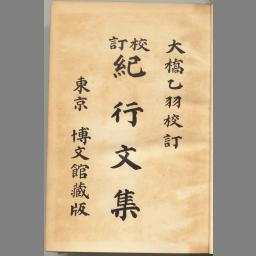 大橋乙羽校訂
校訂
紀行文集
東京 博文館藏版